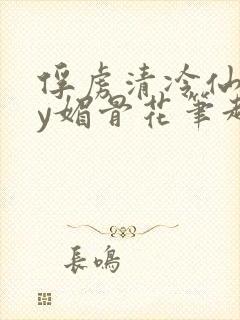 俘虏清冷仙
y媚骨花笔趣
長鳴